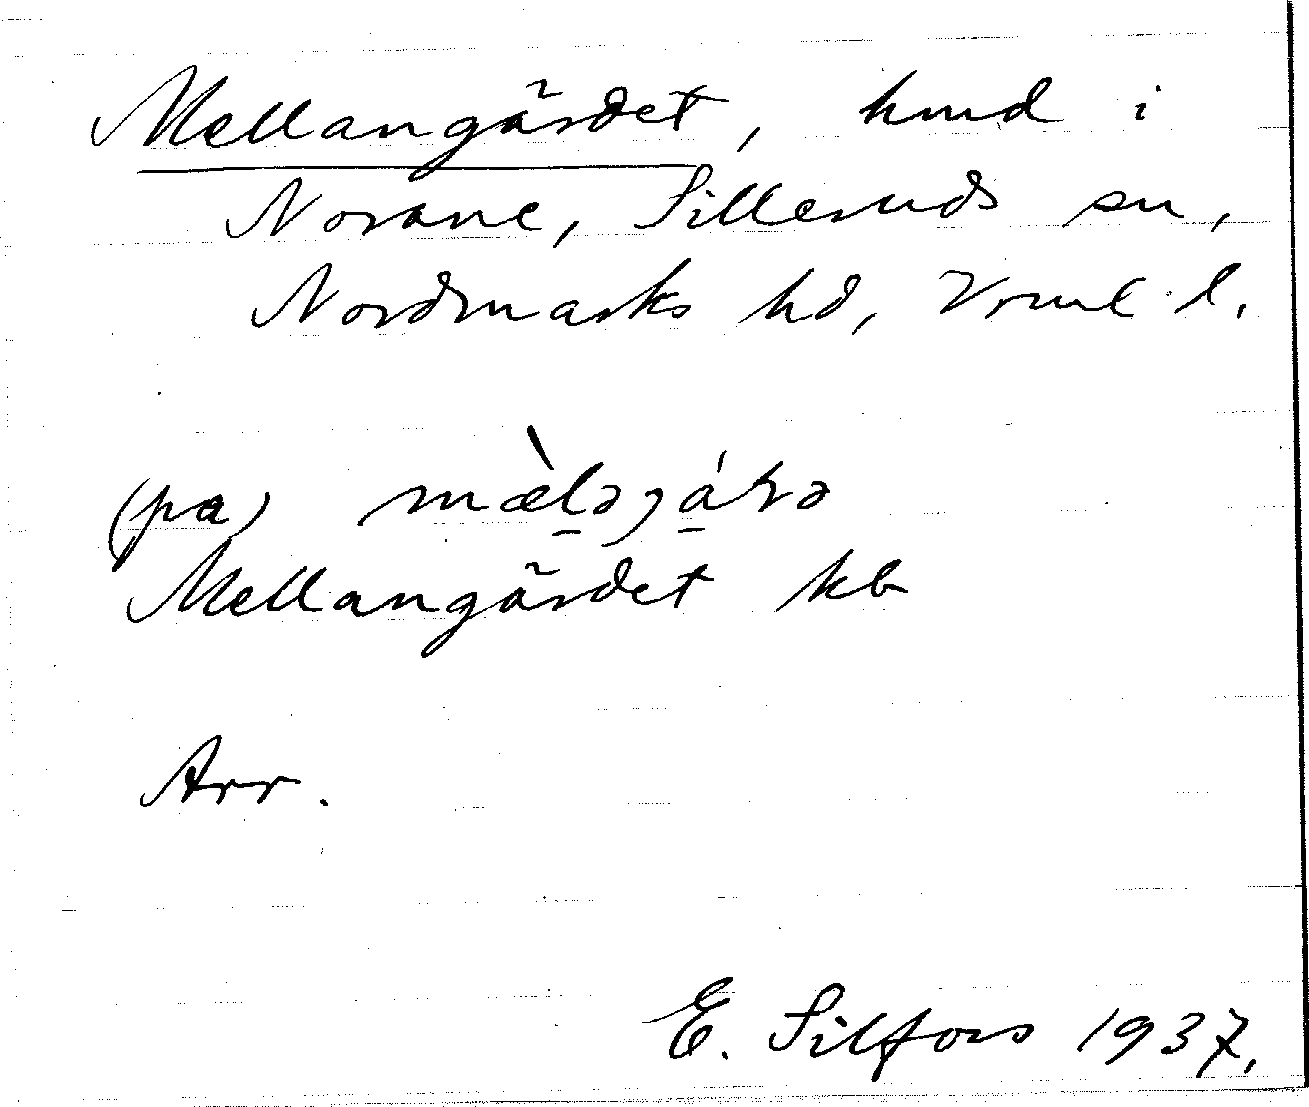 Mellangärdet, hmd i
Norane, Silleruds sn,
Nordmarks hd, Vrml l.
(pa)
Mellangärdet kb
Arr.
E. Silfors 1937.